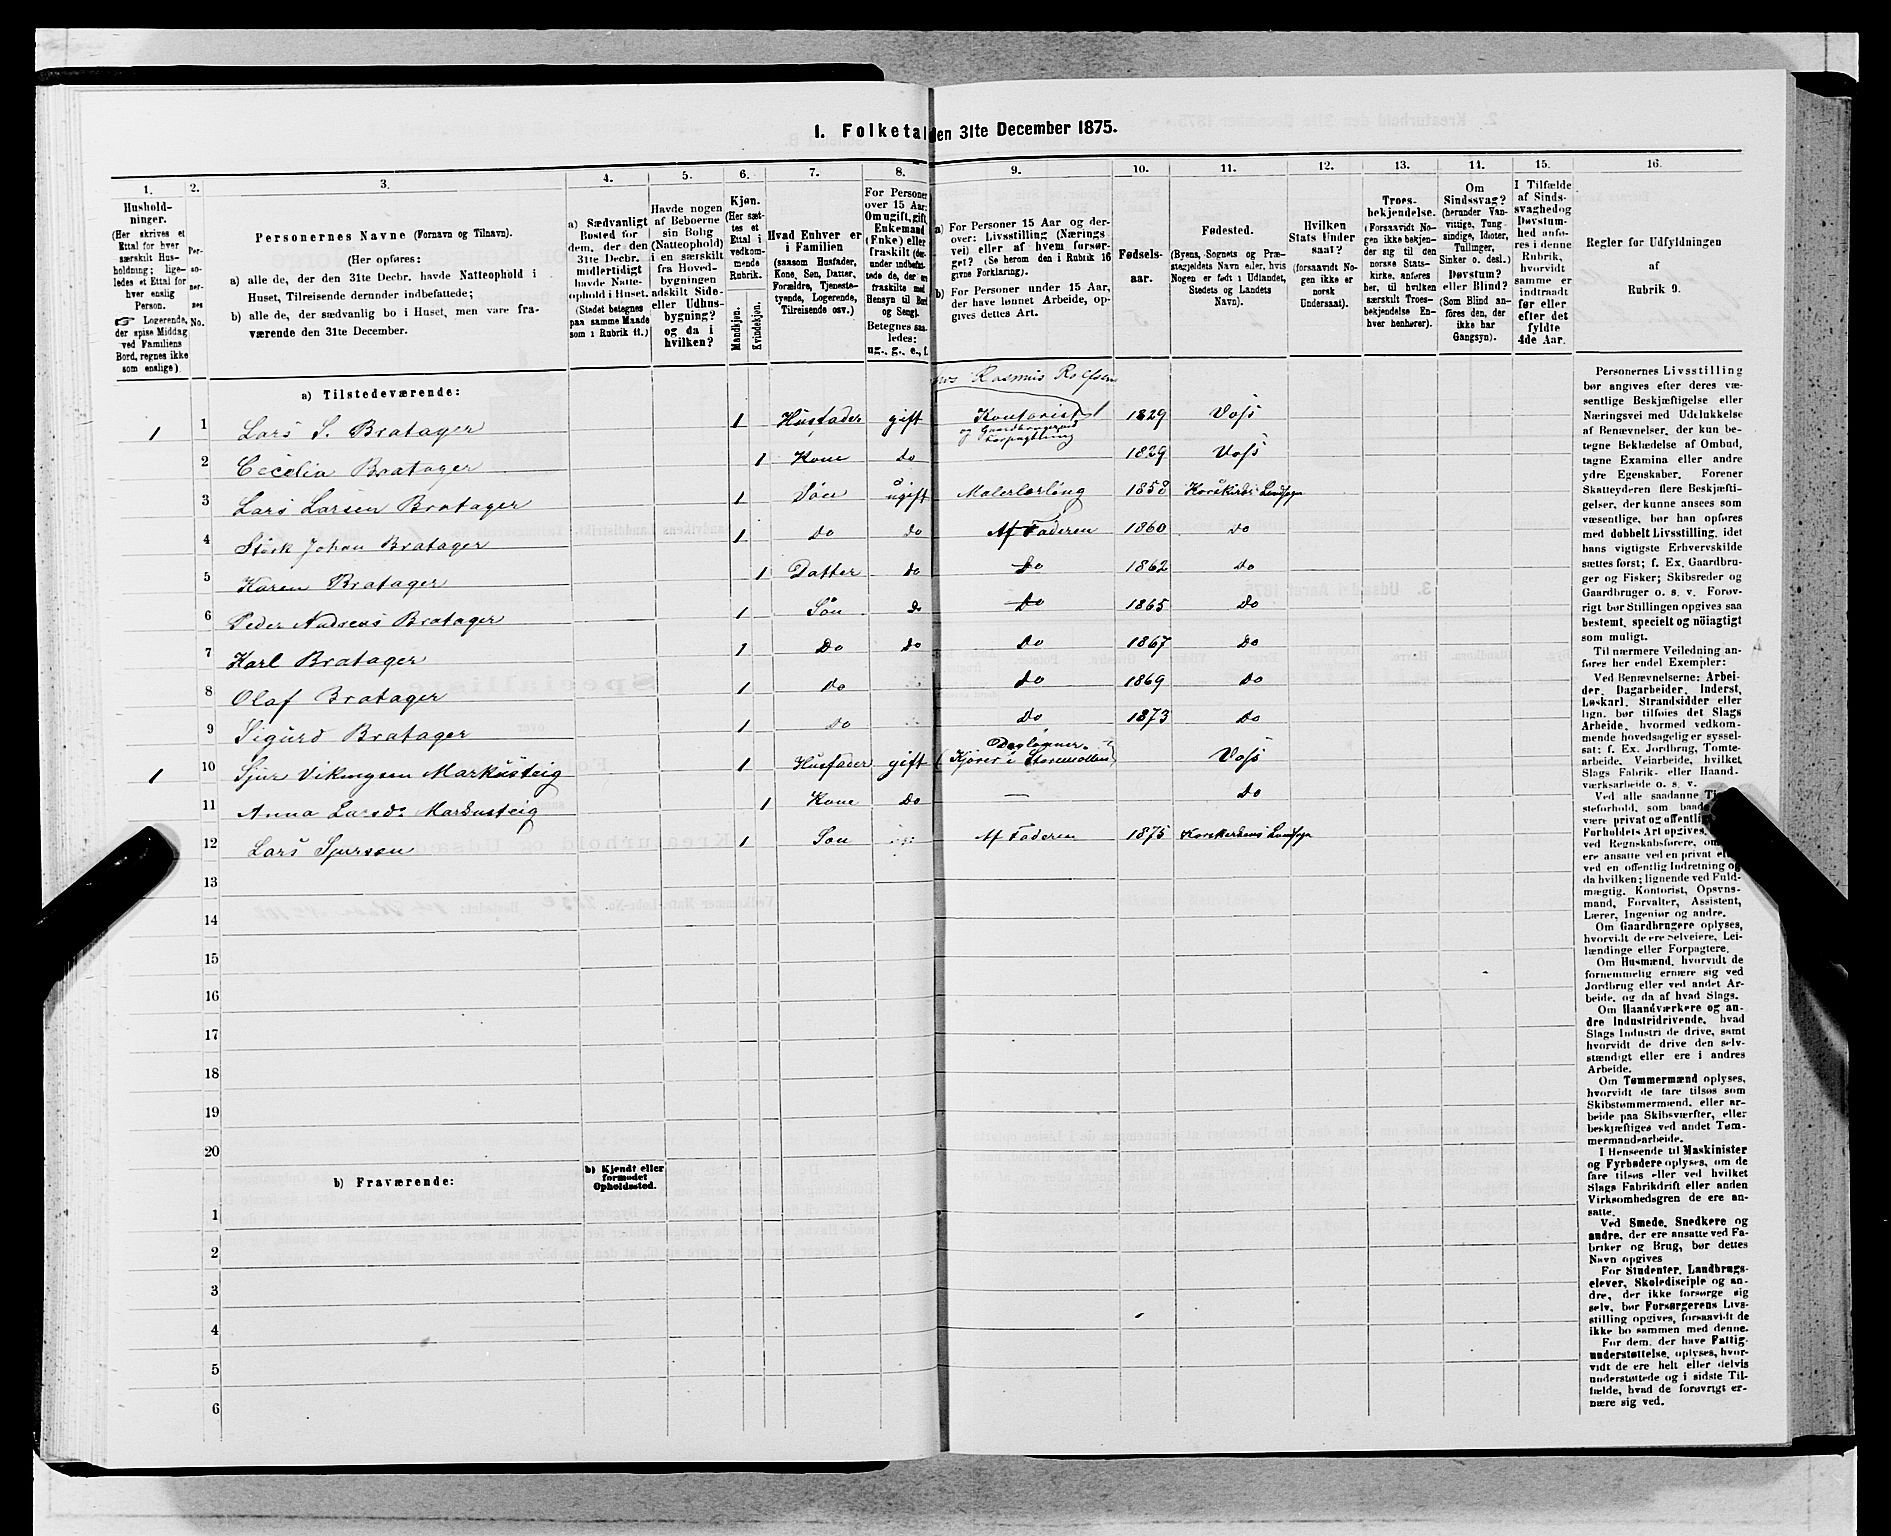 1. Folketal den 31te December 1875.
1. 2. 3. 4. 5. 6. 7. 8. 9. 10. 11. 12. 13. 14. 15. 16.
Hushold-
ninger.
(Her skrives et
Ettal for hver
særskilt Hus-
holdning; lige-
ledes et Ettal for
hver enslig
Person.
☞ Logerende,
der spise Middag
ved Familiens
Bord, regnes ikke
som enslige).
Per-
so-
ner-
nes
No.
Personernes Navne (Fornavn og Tilnavn).
(Her opføres:
a) alle de, der den 31te Decbr. havde Natteophold i
Huset, Tilreisende derunder indbefattede;
b) alle de, der sædvanlig bo i Huset, men vare fra-
værende den 31te December.
a) Sædvanligt
Bosted for
dem, der den
31te Decbr.
midlertidigt
havde Natte-
ophold i Huset.
(Stedet betegnes
paa samme Maade
som i Rubrik 11.)
Havde nogen
af Beboerne
sin Bolig
(Natteophold)
i en særskilt
fra Hoved-
bygningen
adskilt Side-
eller Udhus-
bygning?
og da i
hvilken?
Kjøn.
(Her sæt-
tes et
Ettal i
vedkom-
mende
Rubrik.
Mandkjøn.
Kvindekjøn.
Hvad Enhver er
i Familien
(saasom Husfader,
Kone, Søn, Datter,
Forældre, Tjeneste-
tyende, Logerende,
Tilreisende osv.)
For Personer
over 15 Aar:
Om ugift, gift,
Enkemand
(Enke) eller
fraskilt (der-
under indbefat-
tede de, der ere
fraskilte med
Hensyn til Bord
og Seng).
Betegnes saa-
ledes:
ug., g., e., f.
a) For Personer 15 Aar og der-
over: Livsstilling (Nærings-
vei) eller af hvem forsør-
get? (Se herom den i Rubrik 16
givne Forklaring).
b) For Personer under 15 Aar,
der have lønnet Arbeide, op-
gives dettes Art.
Fødsels-
aar.
Fødested.
(Byens, Sognets og Præ-
stegjeldets Navn eller, hvis
Nogen er født i Udlandet,
Stedets og Landets
Navn).
Hvilken
Stats Under-
saat?
(forsaavidt No-
gen ikke er
norsk
Undersaat).
Troes-
bekjendelse.
(Forsaavidt No-
gen ikke bekjen-
der sig til den
norske Stats-
kirke, anføres
her, til hvilken
særskilt Troes-
bekjendelse En-
hver henhører).
Om
Sindssvag?
(herunder Van-
vittige, Tung-
sindige, Idioter,
Tullinger,
Sinker o. desl.)
Døvstum?
eller Blind?
(Som Blind an-
føres den, der
ikke har
Gangsyn).
I Tilfælde
af Sinds-
svaghed og
Døvstum-
hed anfø-
res i denne
Rubrik,
hvorvidt
samme er
indtraadt
før eller
efter det
fyldte
4de Aar.
Regler for Udfyldningen
af
Rubrik 9.
a) Tilstedeværende:
hos Rasmus Rolfsen
1 1 Lars S. Bratager 1 Husfader gift Kontorist 1829 Voss
og Gaardbruger ved
Forpagtning
2 Cecelia Bratager 1 Kone do 1829 Voss
3 Lars Larsen Bratager 1 Søn ugift Malerlærling 1858 Korskirkes Landsogn
4 Størk Johan Bratager 1 do do Af Faderen 1860 do
5 Karen Bratager 1 Datter do Do 1862 Do
6 Peder Andreas Bratager 1 Søn do Do 1865 Do
7 Karl Bratager 1 Do Do Do 1867 Do
8 Olaf Bratager 1 do do 1869 do
9 Sigurd Bratager 1 do Do 1873 Do
Daglønner
1 10 Sjur Vikingsen Markusteig 1 Husfader gift (Kjører i Storemøllen) Voss
11 Anna Larsd. Markusteig 1 Kone Do — Do
12 Lars Sjursen 1 Søn Af Faderen 1875 Korskirkens Landsogn
13
14
15
16
17
18
19
20
b) Fraværende:
b) Kjendt eller
formodet
Opholdssted.
1
2
3
4
5
6
Personernes Livsstilling
bør angives efter deres væ-
sentlige Beskjæftigelse eller
Næringsvei med Udelukkelse
af Benævnelser, der kun be-
tegne Beklædelse af Ombud,
tagne Examina eller andre
ydre Egenskaber. Forener
Skatteyderen flere Beskjæfti-
gelser, der kunne ansees som
væsentlige, bør han opføres
med dobbelt Livsstilling, idet
hans vigtigste Erhvervskilde
sættes først; f. Ex. Gaardbru-
ger og Fisker; Skibsreder og
Gaardbruger o. s. v. Forøv-
rigt bør Stillingen opgives saa
bestemt, specielt og nöiagtigt
som muligt.
Til nærmere Veiledning an-
føres her endel Exempler:
Ved Benævnelserne: Arbei-
der, Dagarbeider, Inderst,
Løskarl, Strandsidder eller
lign. bør tilføies det Slags
Arbeide, hvormed vedkom-
mende hovedsagelig er syssel-
sat; f. Ex. Jordbrug, Tomte-
arbeide, Veiarbeide, hvilket
Slags Fabrik- eller Haand-
værksarbeide o. s. v.
Ved alle saadanne
steforhold, som baade
være privat og offentlig
Forholdets Art opgives,
ved Regnskabsførere,
ere ansatte ved en privat
ved en offentlig Indretning og
da hvilken; lignende ved Fuld-
mægtig, Kontorist, Opsyns-
mand, Forvalter, Assistent,
Lærer, Ingeniør og andre.
Om Gaardbrugere oplyses,
hvorvidt de ere Selveiere, Lei-
lændinge eller Forpagtere.
Om Husmænd, hvorvidt de
fornemmelig ernære sig ved
Jordbrug eller ved andet Ar-
beide, og da af hvad Slags.
Om Haandværkere og an-
dre Industridrivende, hvad
Slags Industri de drive, samt
hvorvidt de drive den selv-
stændigt eller ere i andres
Arbeide.
Om Tømmermænd oplyses,
hvorvidt de fare tilsøs som
Skibstømmermænd, eller ar-
beide paa Skibsværfter, eller
beskjæftiges ved andet Tøm-
mermandsarbeide.
I Henseende til Maskinister
og Fyrbødere oplyses, om de
fare tilsøs eller ved hvilket
Slags Fabrikdrift eller anden
Virksomhedsgren de ere an-
satte.
Ved Smede, Snedkere og
andre, der ere ansatte ved Fa-
briker og Brug, bør dettes
Navn opgives
For Studenter, Landbrugs-
elever, Skoledisciple og an-
dre, der ikke forsørge sig
selv, bør Forsørgerens Livs-
stilling opgives, forsaavidt de
ikke bo sammen med denne.
For dem, der have Fattig-
understøttelse, oplyses, hvor-
vidt de ere helt eller delvis
understøttede og i sidste Til-
fælde, hvad de forøvrigt er-
nære sig ved.